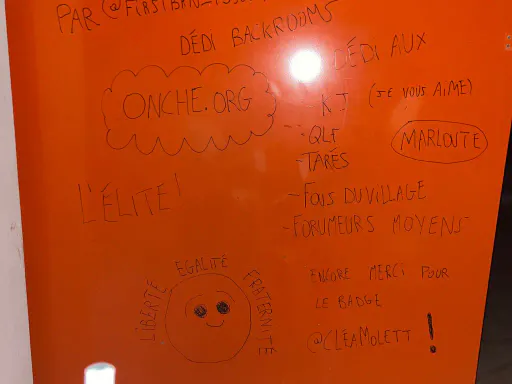 PAR
DÉDI BACKROOMS
ONCHE.ORG
DÉDI AUX
KJ (JE VOUS AIME)
- QLF
- TARÉS
MARLOUTE
L'ÉLITE!
- FOUS DU VILLAGE
- FORUMEURS MOYENS
LIBERTÉ
EGALITÉ
FRATERNITÉ
ENCORE MERCI POUR
LE BADGE
@CLEAMOLETT !